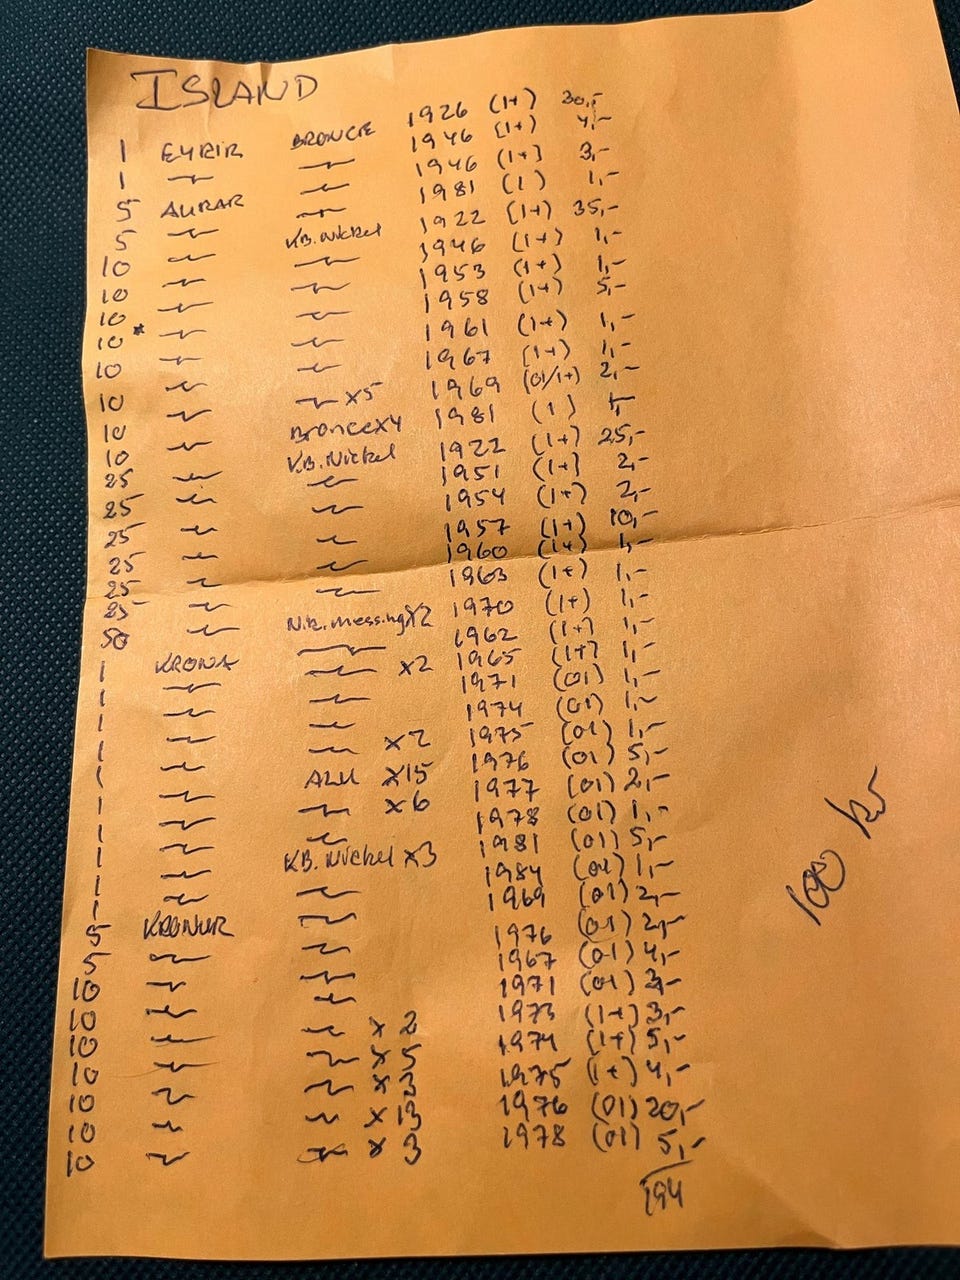 ISLAND
1 EYRIR BRONCE 1926 (1+) 30,-
1 〃 〃 1946 (1+) 4,-
5 AURAR 〃 1946 (1+) 3,-
5 〃 〃 1981 (1) 1,-
10 〃 KB.Nickel 1922 (1+) 35,-
10 〃 〃 1946 (1+) 1,-
10 〃 〃 1953 (1+) 1,-
10* 〃 〃 1958 (1+) 5,-
10 〃 〃 1961 (1+) 1,-
10 〃 〃 1967 (1+) 1,-
10 〃 〃 x5 1969 (01/1+) 2,-
10 〃 Bronce x4 1981 (1) 1,-
25 〃 KB.Nickel 1922 (1+) 25,-
25 〃 〃 1951 (1+) 2,-
25 〃 〃 1954 (1+) 2,-
25 〃 〃 1957 (1+) 10,-
25 〃 〃 1960 (1+) 1,-
25 〃 〃 1963 (1+) 1,-
50 〃 Nik.messing x2 1970 (1+) 1,-
1 KRONA 〃 1962 (1+) 1,-
1 〃 〃 x2 1965 (1+) 1,-
1 〃 〃 1971 (01) 1,-
1 〃 〃 1974 (01) 1,-
1 〃 〃 x2 1975 (01) 1,-
1 〃 ALU x15 1976 (01) 5,-
1 〃 〃 x6 1977 (01) 2,-
1 〃 〃 1978 (01) 1,-
1 〃 KB.Nickel x3 1981 (01) 5,-
1 〃 〃 1984 (01) 1,-
5 KRONUR 〃 1969 (01) 2,-
5 〃 〃 1976 (01) 2,-
10 〃 〃 1967 (01) 4,-
10 〃 〃 1971 (01) 2,-
10 〃 〃 x 2 1973 (1+) 3,-
10 〃 〃 x 5 1974 (1+) 5,-
10 〃 〃 x 2 1975 (1+) 4,-
10 〃 〃 x 13 1976 (01) 20,-
10 〃 〃 x 3 1978 (01) 5,-
194
100 kr